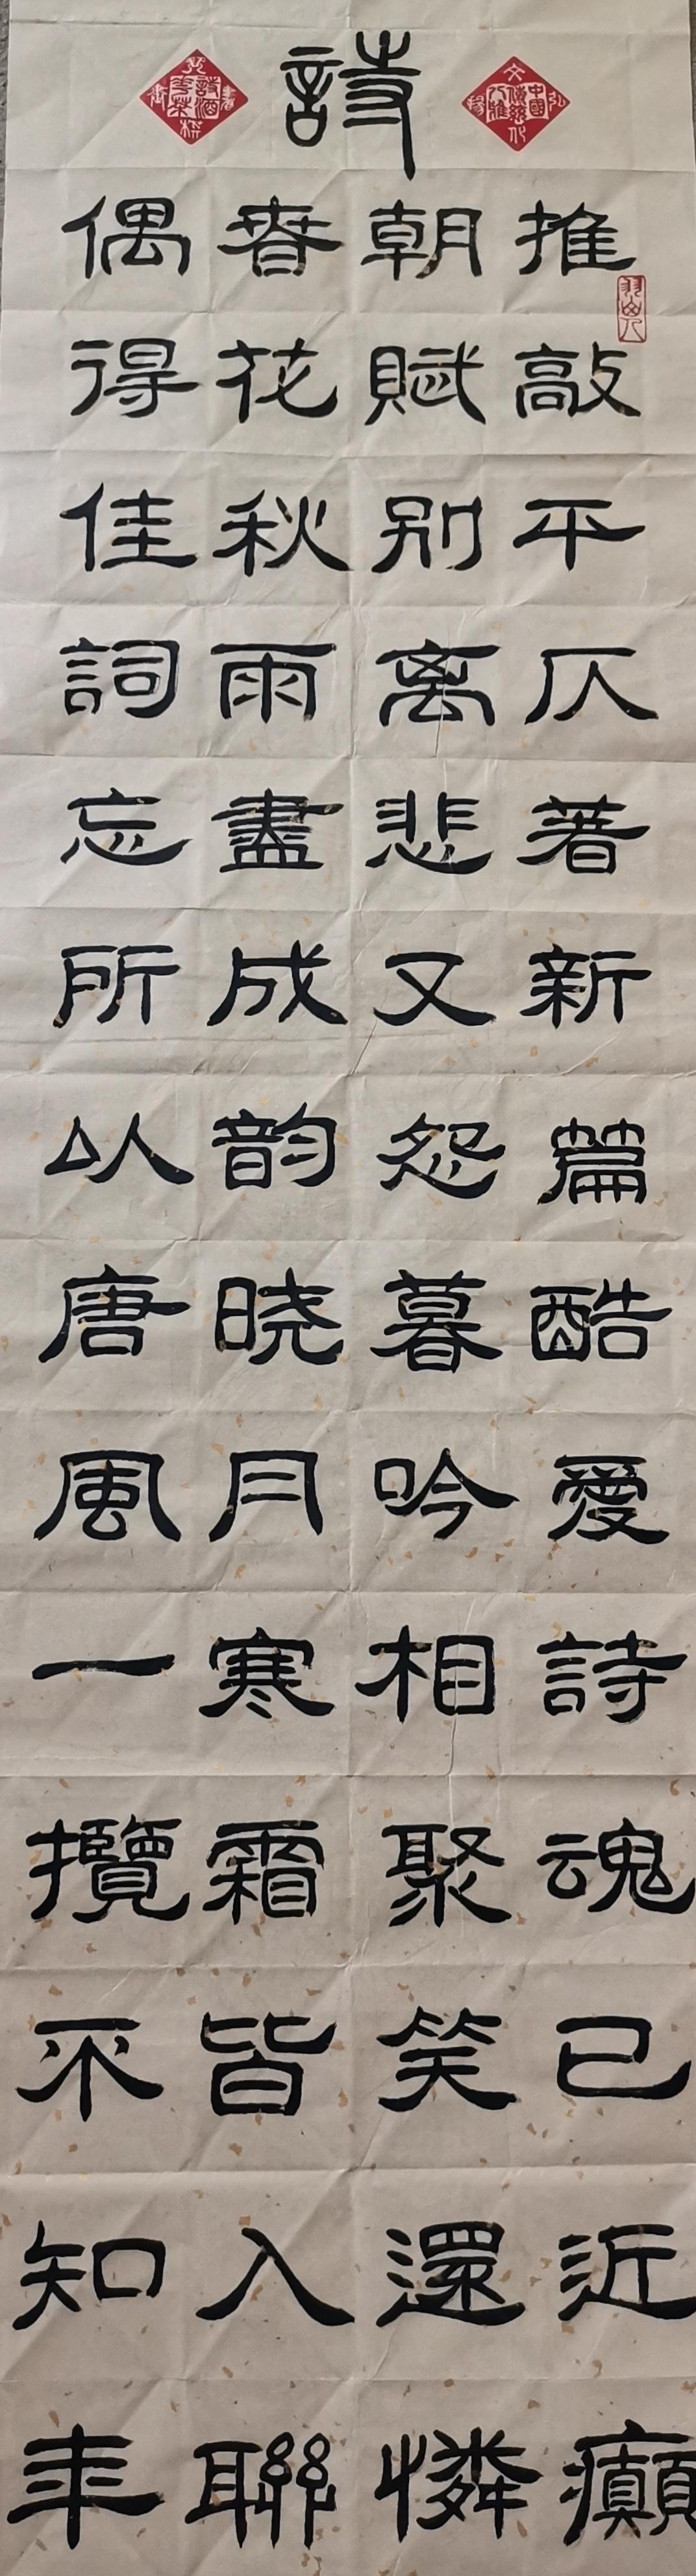 詩
推敲平仄著新篇酷愛詩魂已近癲
朝賦别离悲又怨暮吟相聚笑還憐
春花秋雨盡成韵晓月寒霜皆入聯
偶得佳詞忘所以唐風一攬不知年